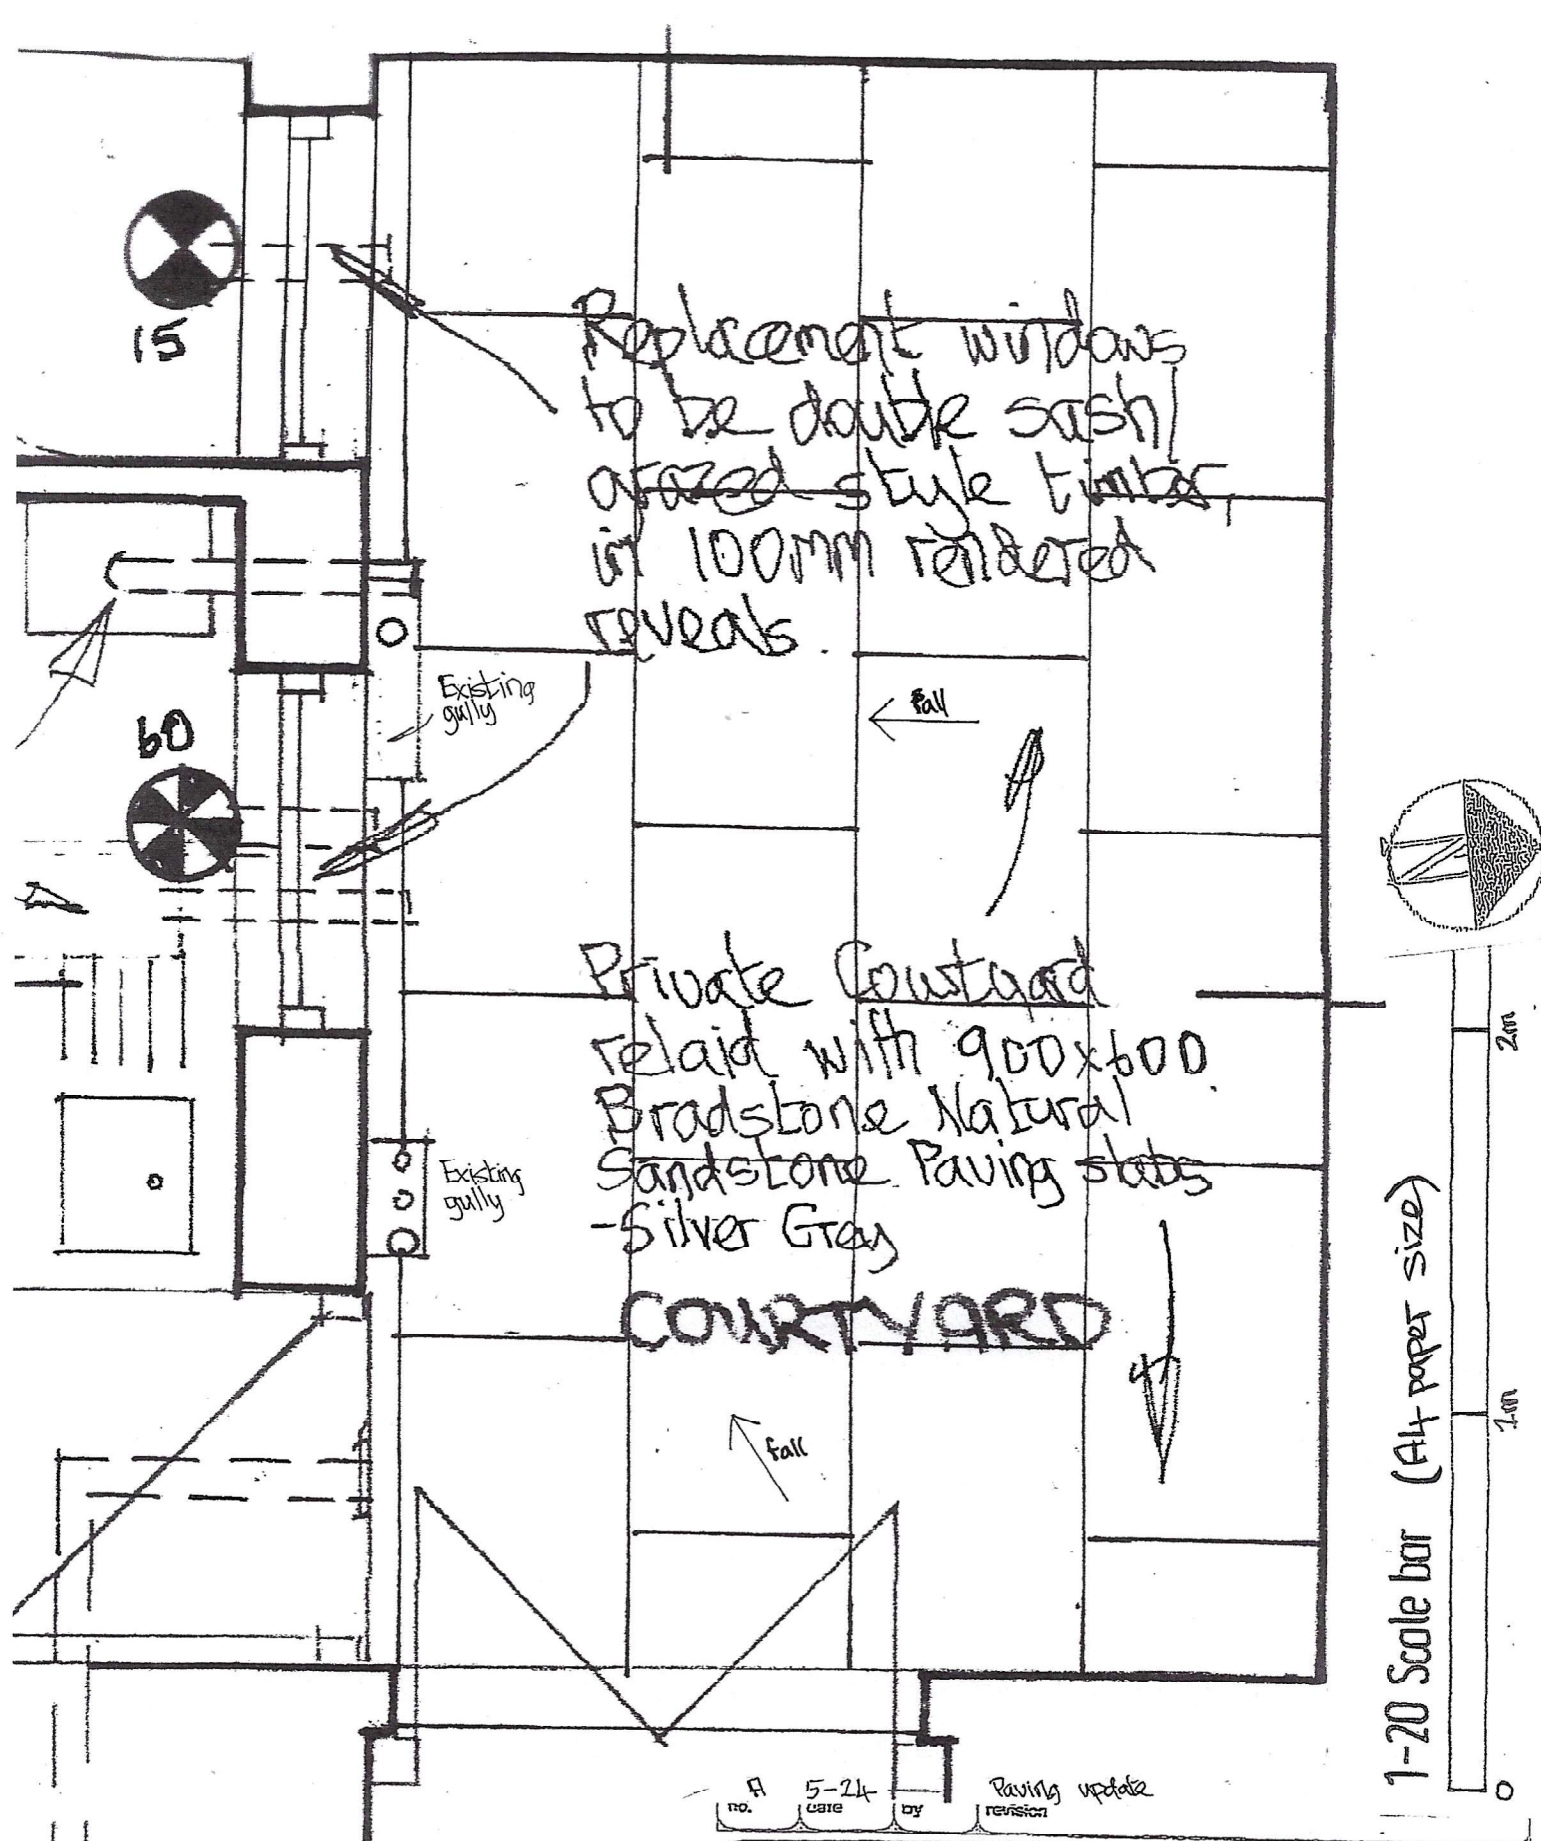 15
Replacement windows
to be double sash
style timber,
in 100mm rendered
reveals.
Existing
gully
fall
60
Private Courtyard
relaid with 900x600
Bradstone Natural
Sandstone Paving slabs
-Silver Gray
Existing
gully
COURTYARD
fall
2m
1m
0
1-20 Scale bar (A4 paper size)
N
A 5-24 Paving update
no. date by revision